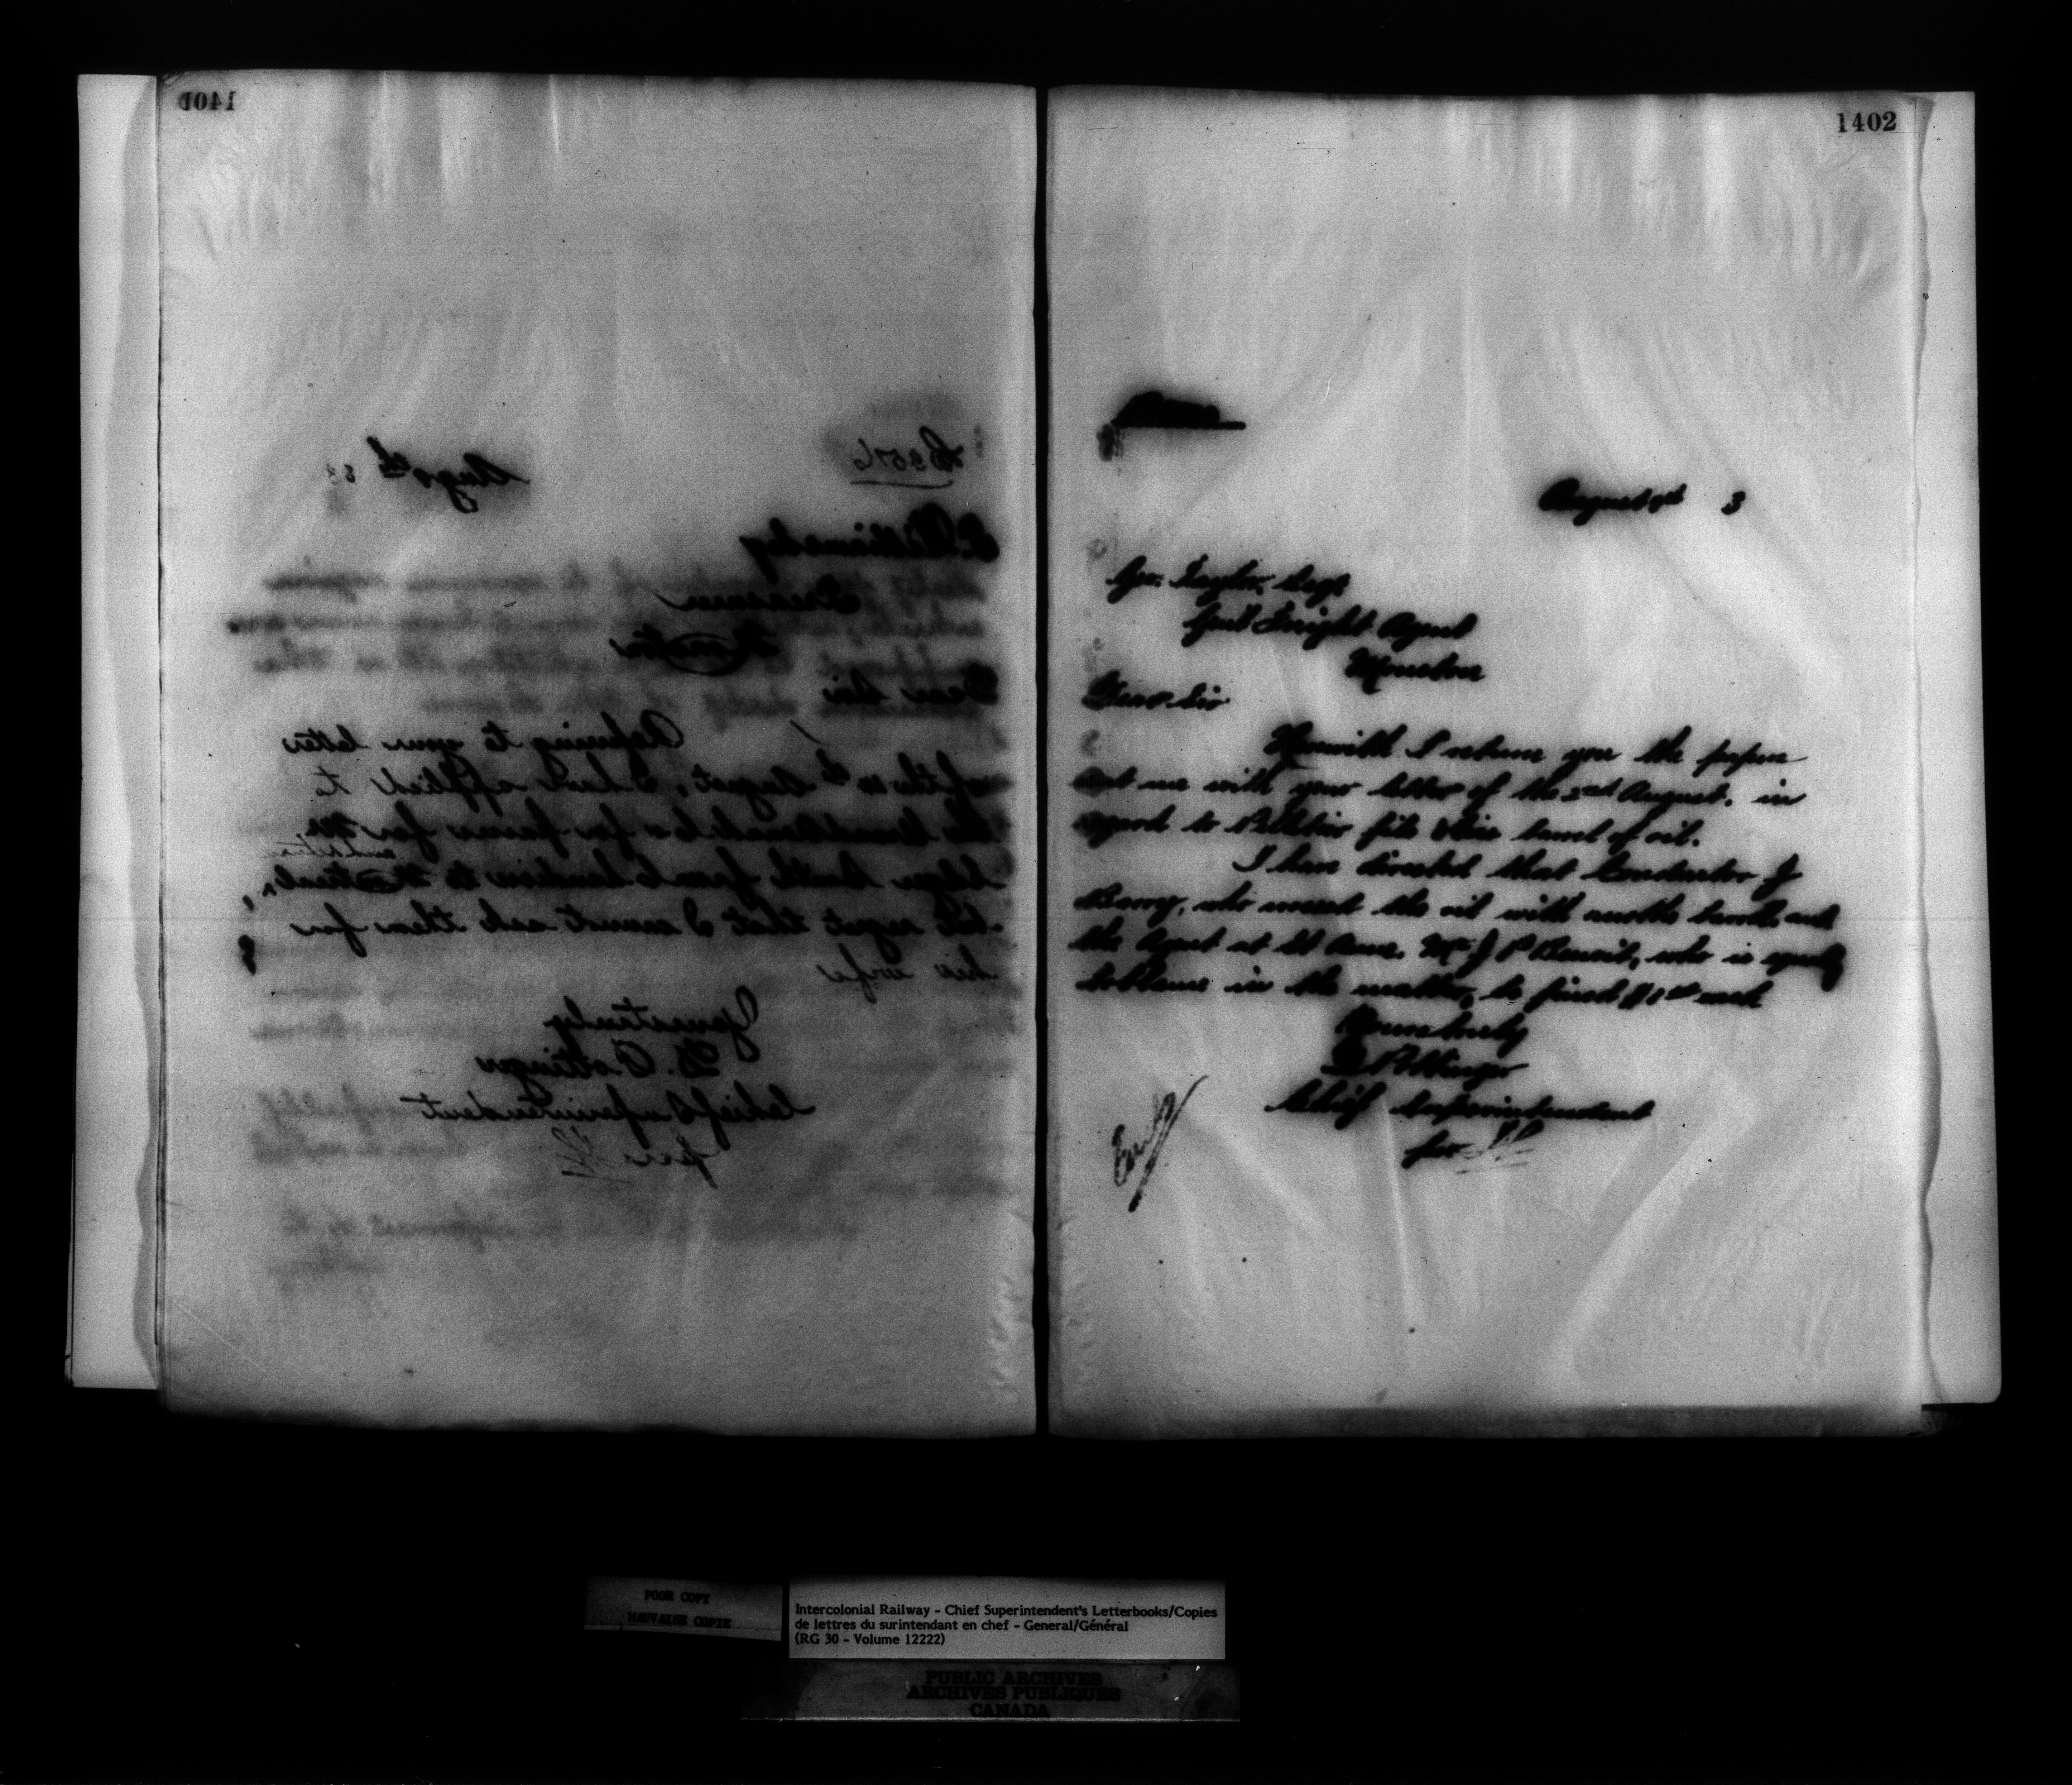 1401
Aug 8th 83
T. Williams
Treasurer
Moncton
Dear Sir
Referring to your letter
of the 10th August, I have applied to
the Grand Trunk for passes for Mr
and return
Smith from to Montreal,
regret that I cannot ask them for
his wife
Yours truly
D. Pottinger
Chief Superintendent
per
1402
August 3
Geo. Taylor, Esqr
Genl Freight Agent
Moncton
Dear Sir
Herewith I return you the papers
sent me with your letter of the 2nd August, in
regard to Pelletier fils barrel of oil.
I have directed that Conductor J
Barry, who the oil with barrels and
the Agent at St Anne, Mr J P Benoit, who is equally
to blame in the matter, be fined $1.00 each
Yours truly
D Pottinger
Chief Superintendent
per
POOR COPY
MAUVAISE COPIE
Intercolonial Railway - Chief Superintendent's Letterbooks/Copies
de lettres du surintendant en chef - General/Général
(RG 30 - Volume 12222)
PUBLIC ARCHIVES
ARCHIVES PUBLIQUES
CANADA